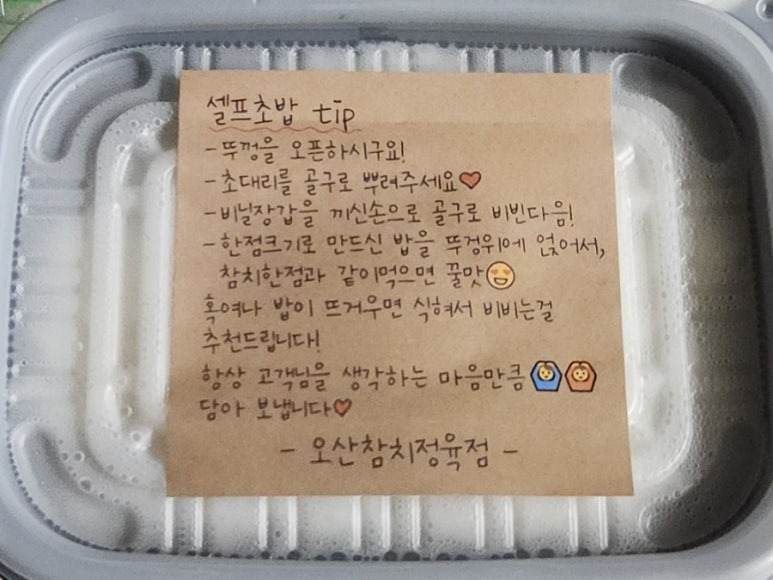 셀프초밥 tip
-뚜껑을 오픈하시구요!
-초대리를 골구로 뿌려주세요❤️
-비닐장갑을 끼신손으로 골구로 비빈다음!
-한점크기로 만드신 밥을 뚜겅위에 얹어서,
참치한점과 같이먹으면 꿀맛😍
혹여나 밥이 뜨거우면 식혀서 비비는걸
추천드립니다!
항상 고객님을 생각하는 마음만큼🙆‍♂️🙆
담아 보냅니다❤️
- 오산참치정육점 -